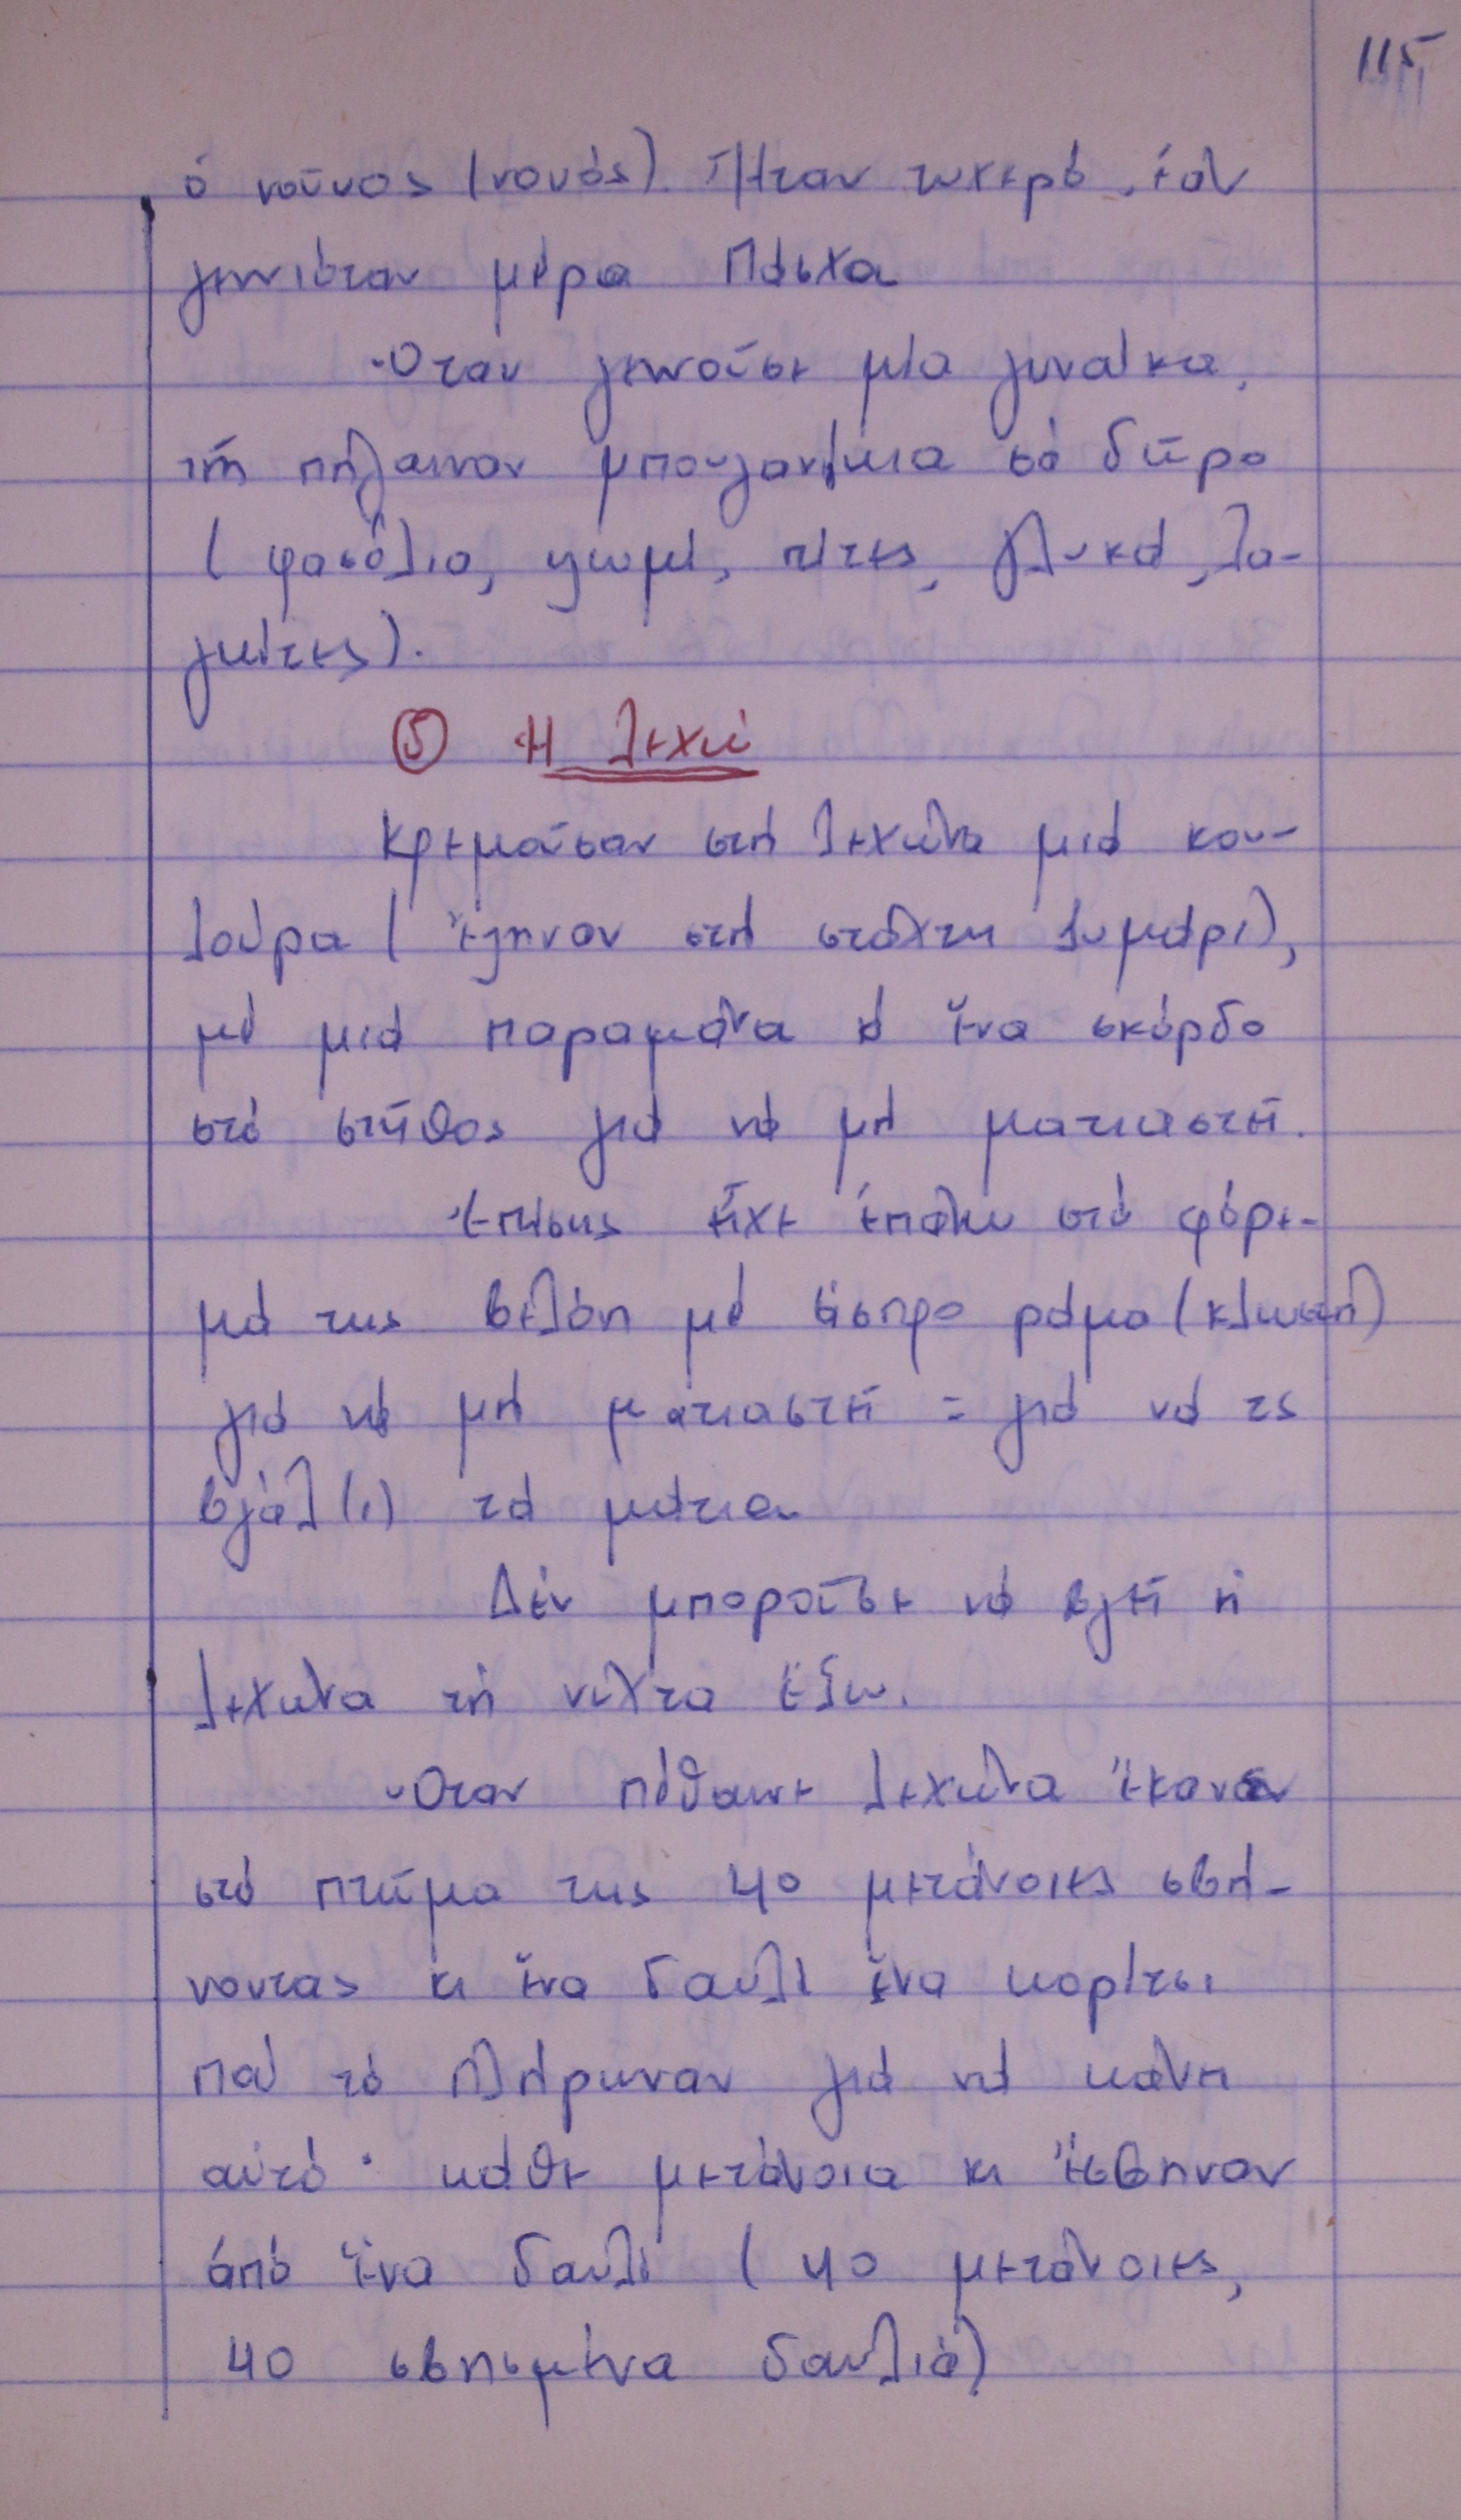 115
ὁ νοῦνος (νονός). Ἦταν τυχερό, ἐάν
γεννιόταν μέρα Πάσχα
Ὅταν γεννοῦσε μία γυναίκα,
τή πήγαιναν μπουγανίκια σά δῶρο
(φασόλια, ψωμί, πίτες, γλυκά, λα-
γκίτες).
⑤ Ἡ λεχώ
Κρεμοῦσαν στή λεχώνα μιά κου-
λούρα (ἔψηναν στή στάχτη ζυμάρι),
μέ μιά παραμάνα ἤ ἕνα σκόρδο
στό στῆθος γιά νά μή ματιαστῆ.
Ἐπίσης εἶχε ἐπάνω στό φόρε-
μά της βελόνη μέ ἄσπρο ράμα (κλωστή)
γιά νά μή ματιαστῆ = γιά νά τς
βγάλ(ι) τά μάτια
Δέν μποροῦσε νά βγῆ ἡ
λεχώνα τή νύχτα ἔξω.
Ὅταν πέθαινε λεχώνα ἔκαναν
στό πτῶμα της 40 μετάνοιες σβή-
νοντας κι ἕνα δαυλί ἕνα κορίτσι
πού τό πλήρωναν γιά νά κάνη
αὐτό· κάθε μετάνοια κι ἔσβηναν
ἀπό ἕνα δαυλί (40 μετάνοιες,
40 σβησμένα δαυλιά)